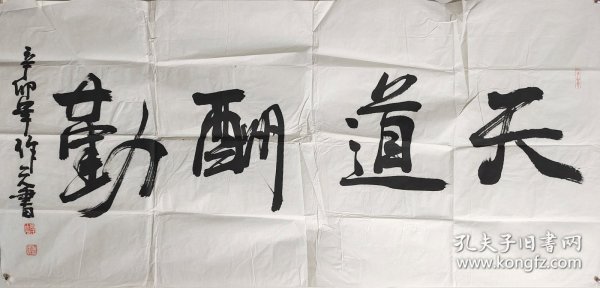 天道酬勤
辛卯年
书
孔夫子旧书网
www.kongfz.com